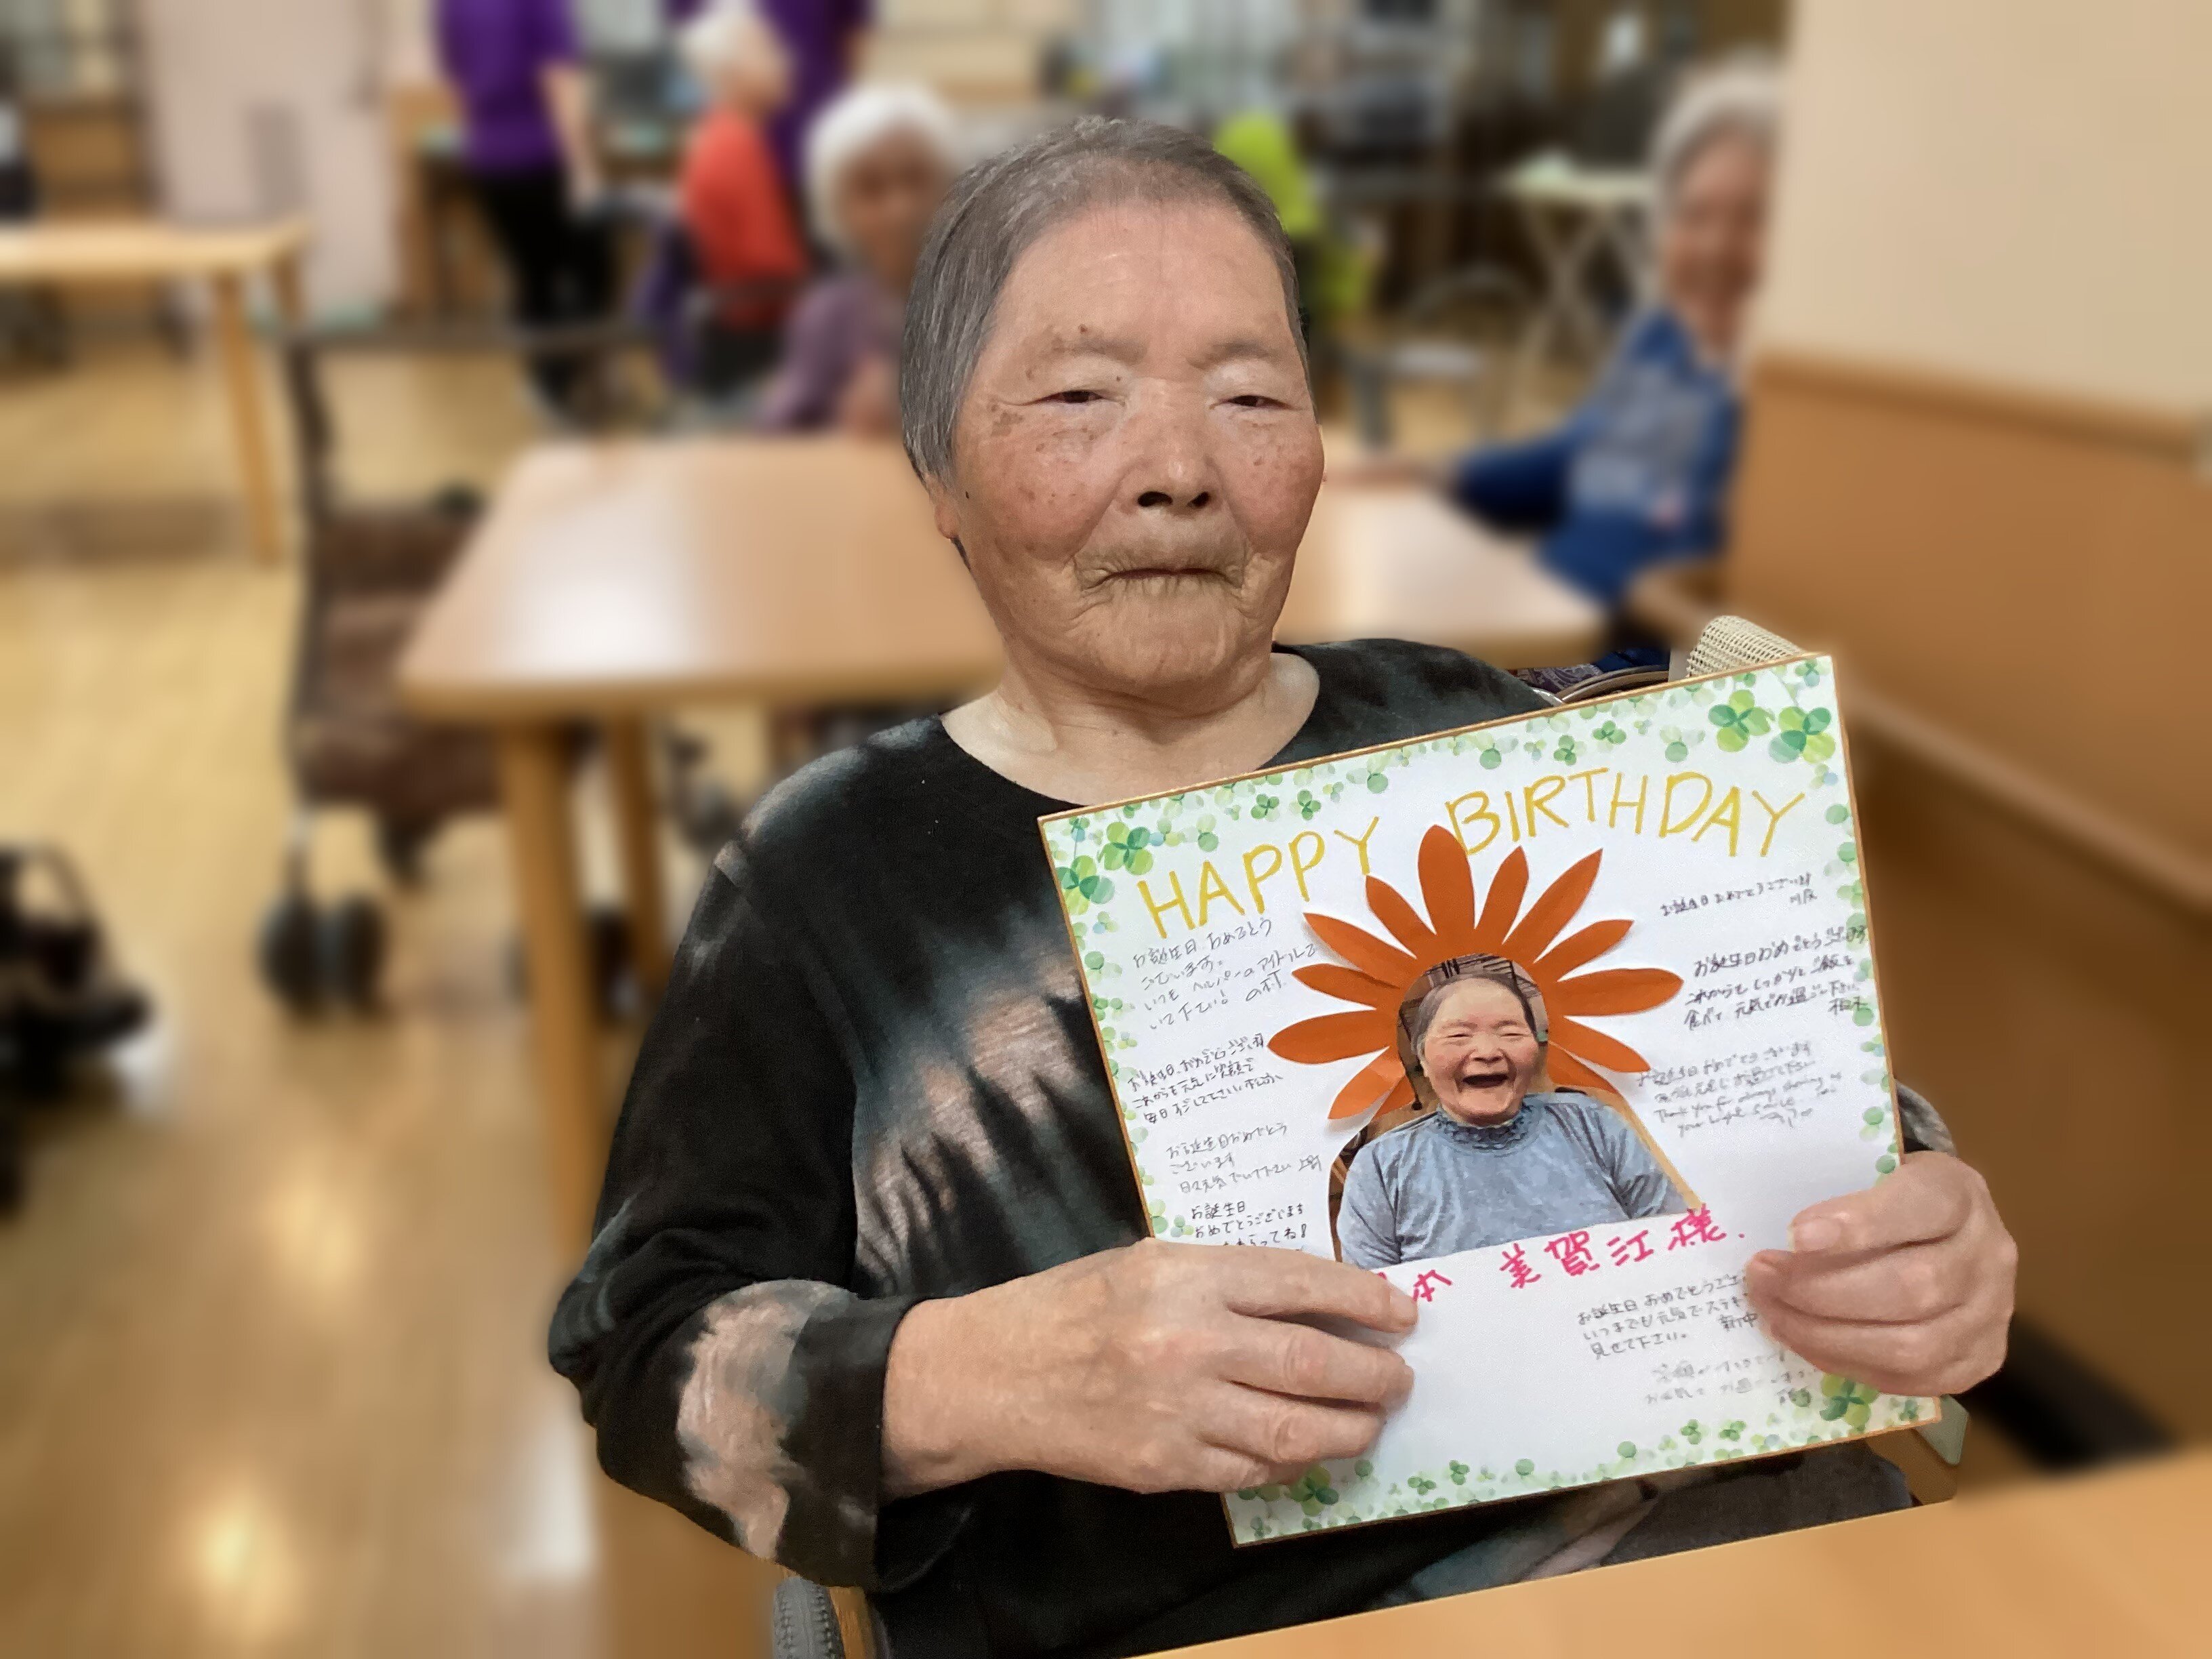 HAPPY BIRTHDAY
お誕生日 おめでとう
ございます。
いつも ヘルパーの アイドルで
いて下さい!
お誕生日 おめでとうございます
これからも元気に笑顔で
お誕生日おめでとう
ございます
日々元気でいて下さい 上野
お誕生日
おめでとうございます
お誕生日 おめでとうございます
お誕生日おめでとう
これからもしっかりと ご飯を
食べて、元気でお過ごし下さい
お誕生日おめでとうございます
Thank you for always showing us
your bright smile
本 美賀江様.
お誕生日 おめでとうござ
いつまでも元気でステキ
見せて下さい。